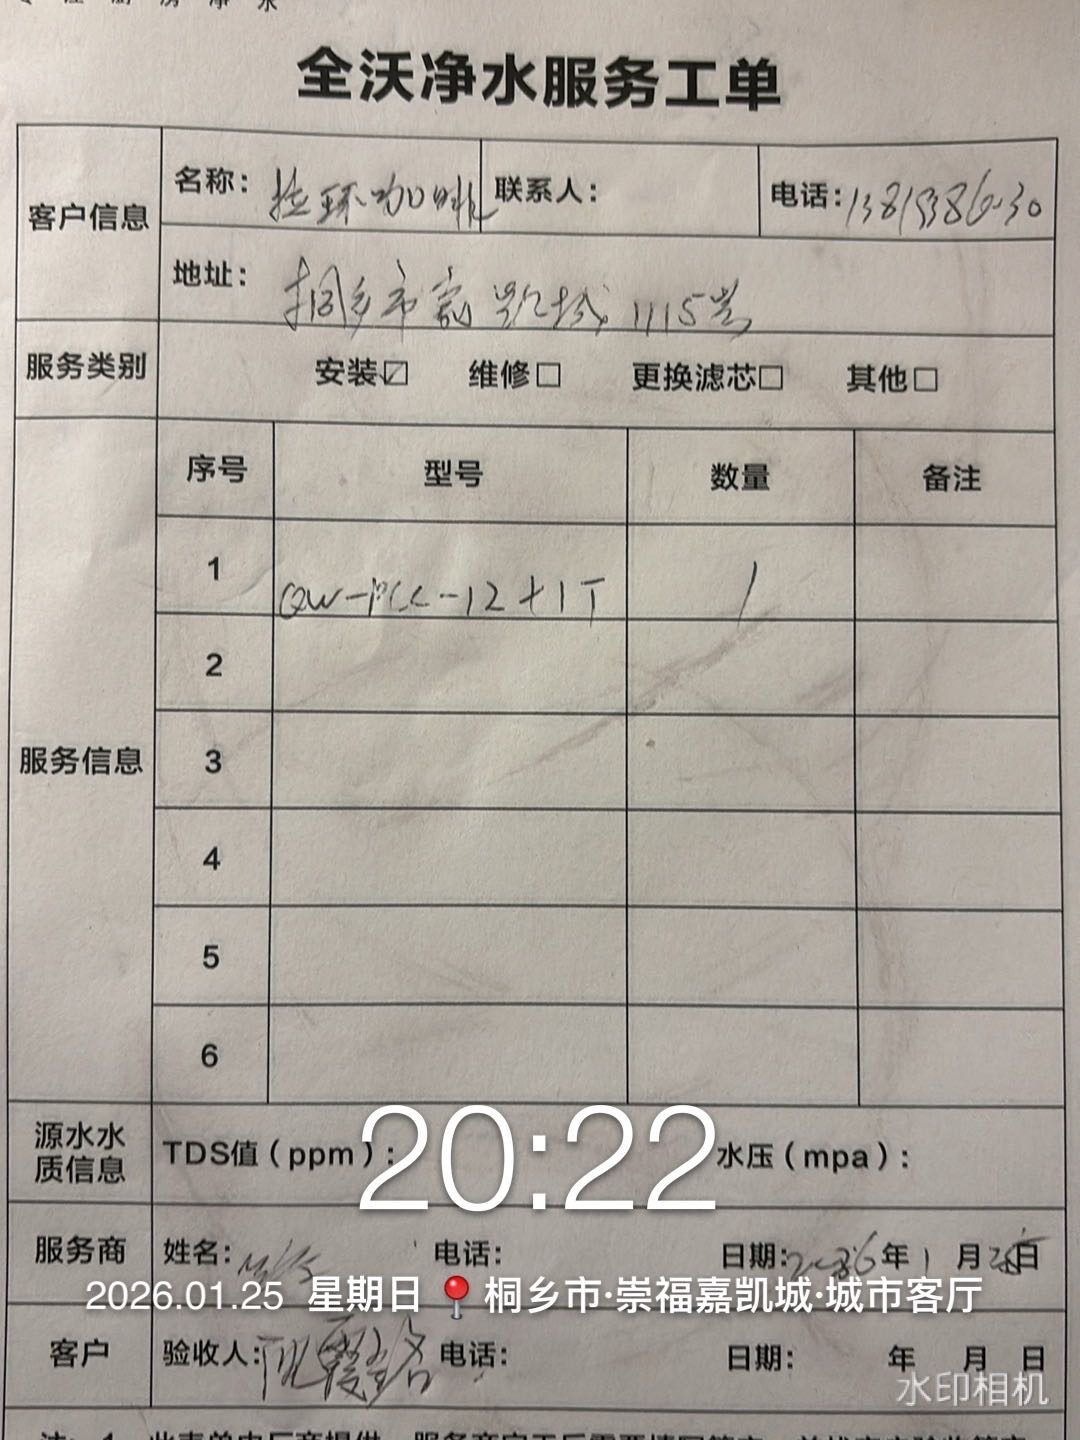 全沃净水服务工单
客户信息 名称: 拉环咖啡 联系人: 电话:
地址: 桐乡市 凯城 1115号
服务类别 安装☑ 维修□ 更换滤芯□ 其他□
服务信息 序号 型号 数量 备注
1 QW-PCC-12+1T 1
2
3
4
5
6
20:22
源水水质信息 TDS值(ppm): 水压(mpa):
服务商 姓名: 电话: 日期: 2026年1月25日
2026.01.25 星期日 桐乡市·崇福嘉凯城·城市客厅
客户 验收人: 电话: 日期: 年 月 日
水印相机